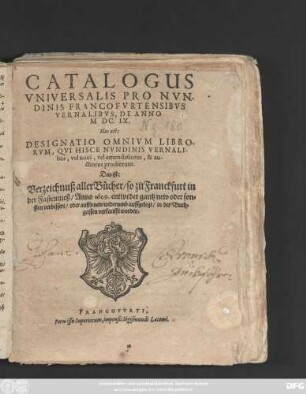 CATALOGUS
VNIVERSALIS PRO NVN-
DINIS FRANCOFVRTENSIBVS
VERNALIBVS, DE ANNO
M DC. IX.
Hoc est:
DESIGNATIO OMNIVM LIBRO-
RVM, QVI HISCE NVNDINIS VERNALI-
bus, vel noui, vel emendatiores, & au-
ctiores prodierunt.
Das ist:
Verzeichnuß aller Bücher / so zu Franckfurt in
der Fastenmeß / Anno 1609. entweder gantz new oder son-
sten verbessert / oder auffs new widerumb auffgelegt / in der Buch-
gassen verkaufft worden.
FRANCOFVRTI,
Permissu Superiorum, impensis Sigismundi Latomi.